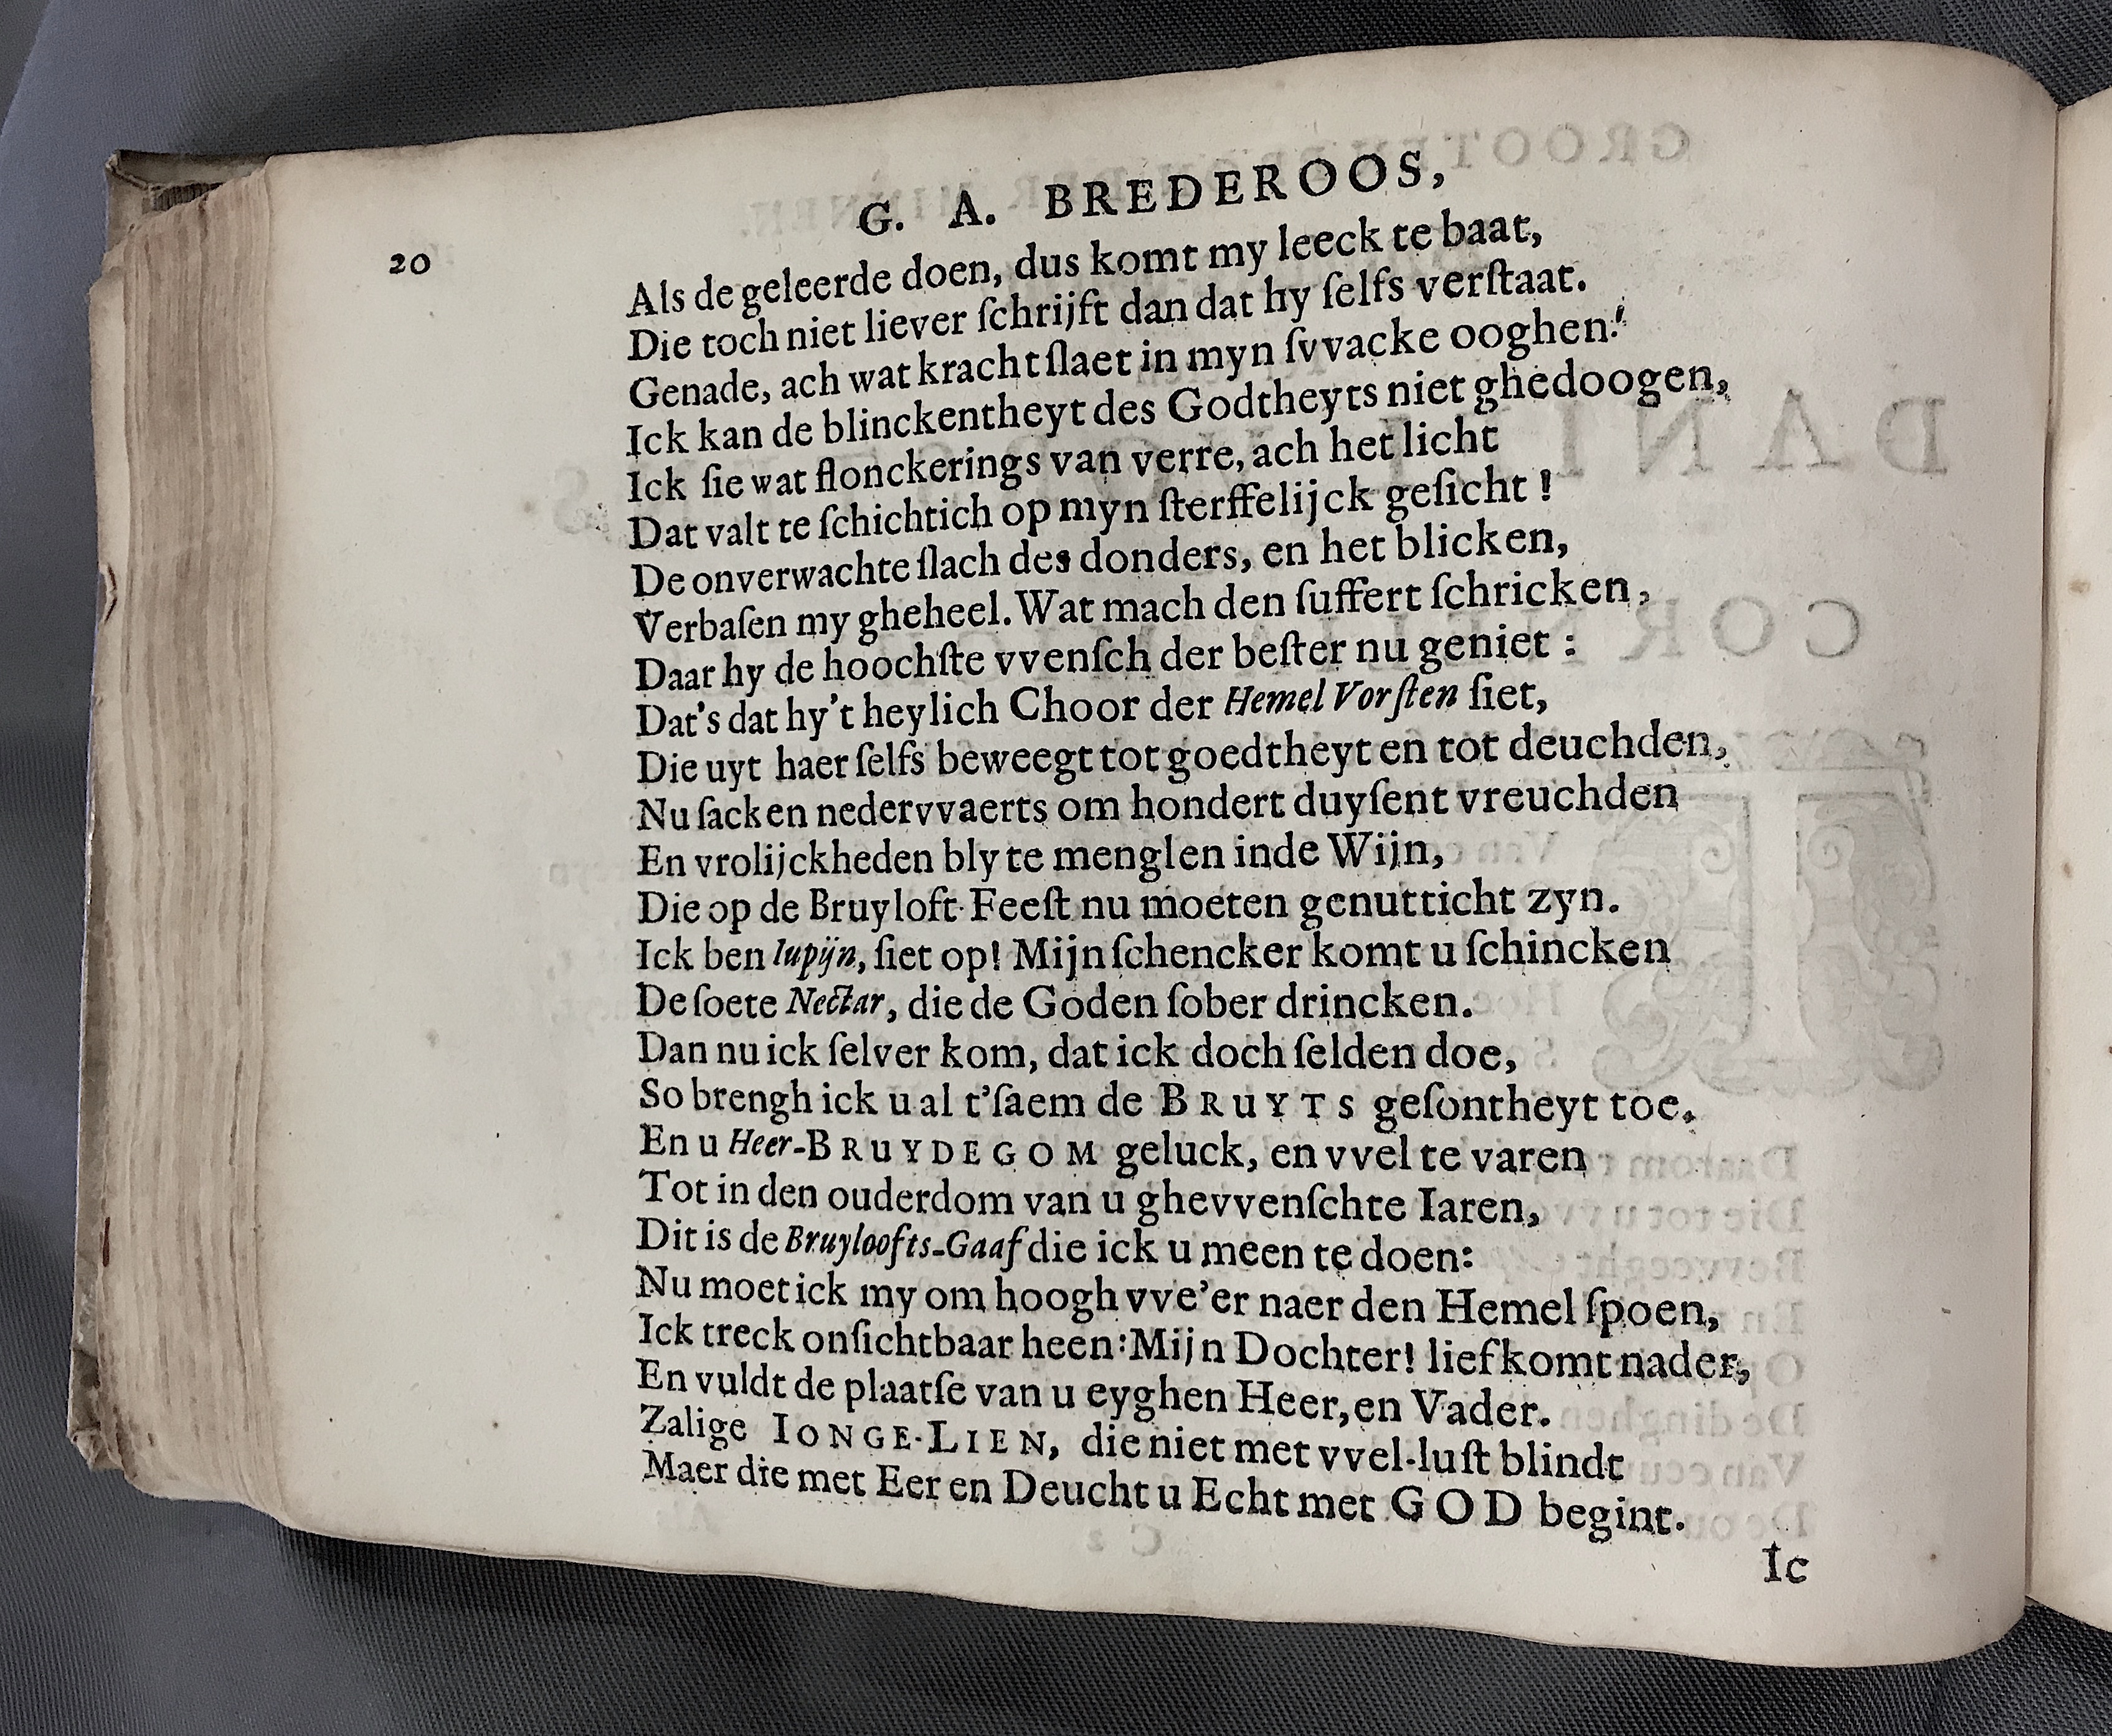 G. A. BREDEROOS,
20
Als de geleerde doen, dus komt my leeck te baat,
Die toch niet liever ſchrijft dan dat hy ſelfs verſtaat.
Genade, ach wat kracht ſlaet in myn ſvvacke ooghen!
Ick kan de blinckentheyt des Godtheyts niet ghedoogen,
Ick ſie wat flonckerings van verre, ach het licht
Dat valt te ſchichtich op myn ſterffelijck geſicht!
De onverwachte ſlach des donders, en het blicken,
Verbaſen my gheheel. Wat mach den ſuffert ſchricken,
Daar hy de hoochſte vvenſch der beſter nu geniet:
Dat's dat hy't heylich Choor der Hemel Vorſten ſiet,
Die uyt haer ſelfs beweegt tot goedtheyt en tot deuchden,
Nu ſacken nedervvaerts om hondert duyſent vreuchden
En vrolijckheden bly te menglen inde Wijn,
Die op de Bruyloft-Feeſt nu moeten genutticht zyn.
Ick ben Iupijn, ſiet op! Mijn ſchencker komt u ſchincken
De ſoete Nectar, die de Goden ſober drincken.
Dan nu ick ſelver kom, dat ick doch ſelden doe,
So brengh ick u al t'ſaem de BRUYTS geſontheyt toe,
En u Heer-BRUYDEGOM geluck, en vvel te varen
Tot in den ouderdom van u ghevvenſchte Iaren,
Dit is de Bruyloofts-Gaaf die ick u meen te doen:
Nu moet ick my om hoogh vve'er naer den Hemel ſpoen,
Ick treck onſichtbaar heen: Mijn Dochter! lief komt nader,
En vuldt de plaatſe van u eyghen Heer, en Vader.
Zalige IONGE-LIEN, die niet met vvel-luſt blindt
Maer die met Eer en Deucht u Echt met GOD begint.
Ic